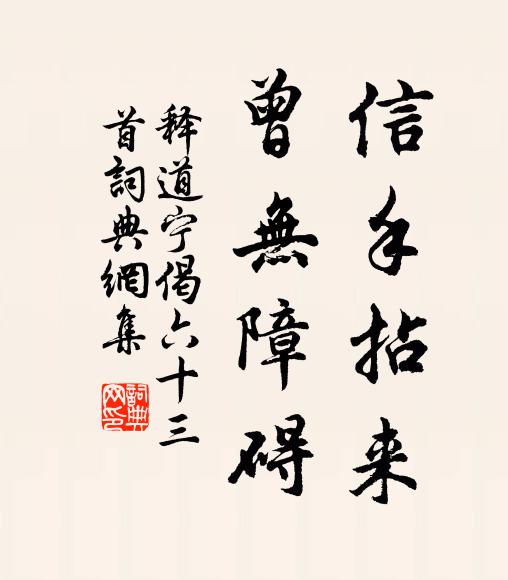 信手拈来
曾無障碍
释道宁偈六十三
首詞典網集
詞典
网印